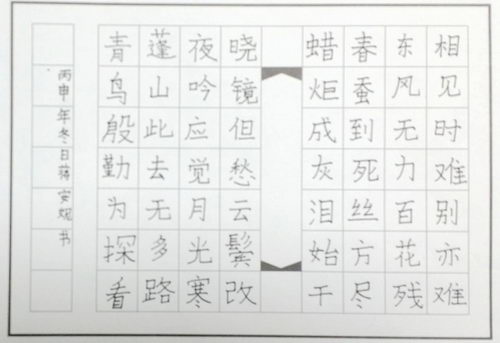 相见时难别亦难
东风无力百花残
春蚕到死丝方尽
蜡炬成灰泪始干
晓镜但愁云鬓改
夜吟应觉月光寒
蓬山此去无多路
青鸟殷勤为探看
丙申年冬日蒋安妮书